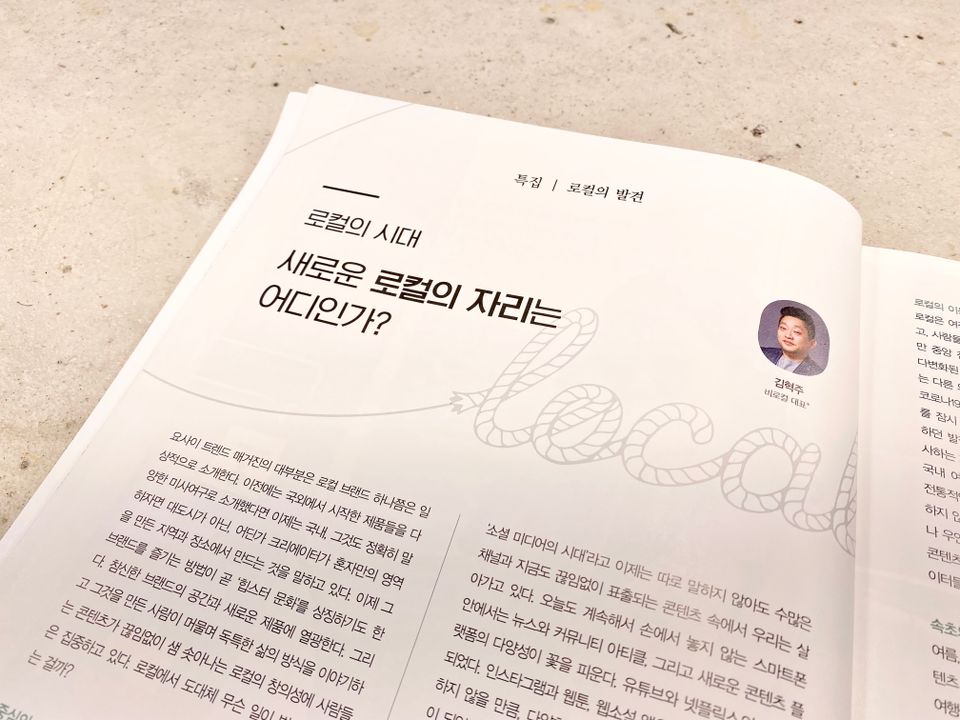 특집 | 로컬의 발견
로컬의 시대
새로운 로컬의 자리는
어디인가?
local
김혁주
비로컬 대표*
요사이 트렌드 매거진의 대부분은 로컬 브랜드 하나쯤은 일
상적으로 소개한다. 이전에는 국외에서 시작한 제품들을 다
양한 미사여구로 소개했다면 이제는 국내, 그것도 정확히 말
하자면 대도시가 아닌, 어딘가 크리에이터가 혼자만의 영역
을 만든 지역과 장소에서 만드는 것을 말하고 있다. 이제 그
브랜드를 즐기는 방법이 곧 '힙스터 문화'를 상징하기도 한
다. 참신한 브랜드의 공간과 새로운 제품에 열광한다. 그리
고 그것을 만든 사람이 머물며 독특한 삶의 방식을 이야기하
는 콘텐츠가 끊임없이 샘 솟아나는 로컬의 창의성에 사람들
은 집중하고 있다. 로컬에서 도대체 무슨 일이
는 걸까?
'소셜 미디어의 시대'라고 이제는 따로 말하지 않아도 수많은
채널과 지금도 끊임없이 표출되는 콘텐츠 속에서 우리는 살
아가고 있다. 오늘도 계속해서 손에서 놓지 않는 스마트폰
안에서는 뉴스와 커뮤니티 아티클, 그리고 새로운 콘텐츠 플
랫폼의 다양성이 꽃을 피운다. 유튜브와 넷플릭스
되었다. 인스타그램과 웹툰, 웹소설
하지 않을 만큼, 다양
이 되어
로컬의 이
로컬은 여
고, 사람들
만 중앙
다변화된
는 다른
코로나19
를 잠시
하던
사하는
국내 여
전통적
하지 않
나 우연
콘텐츠
이터들
속초
여름,
텐츠
여행